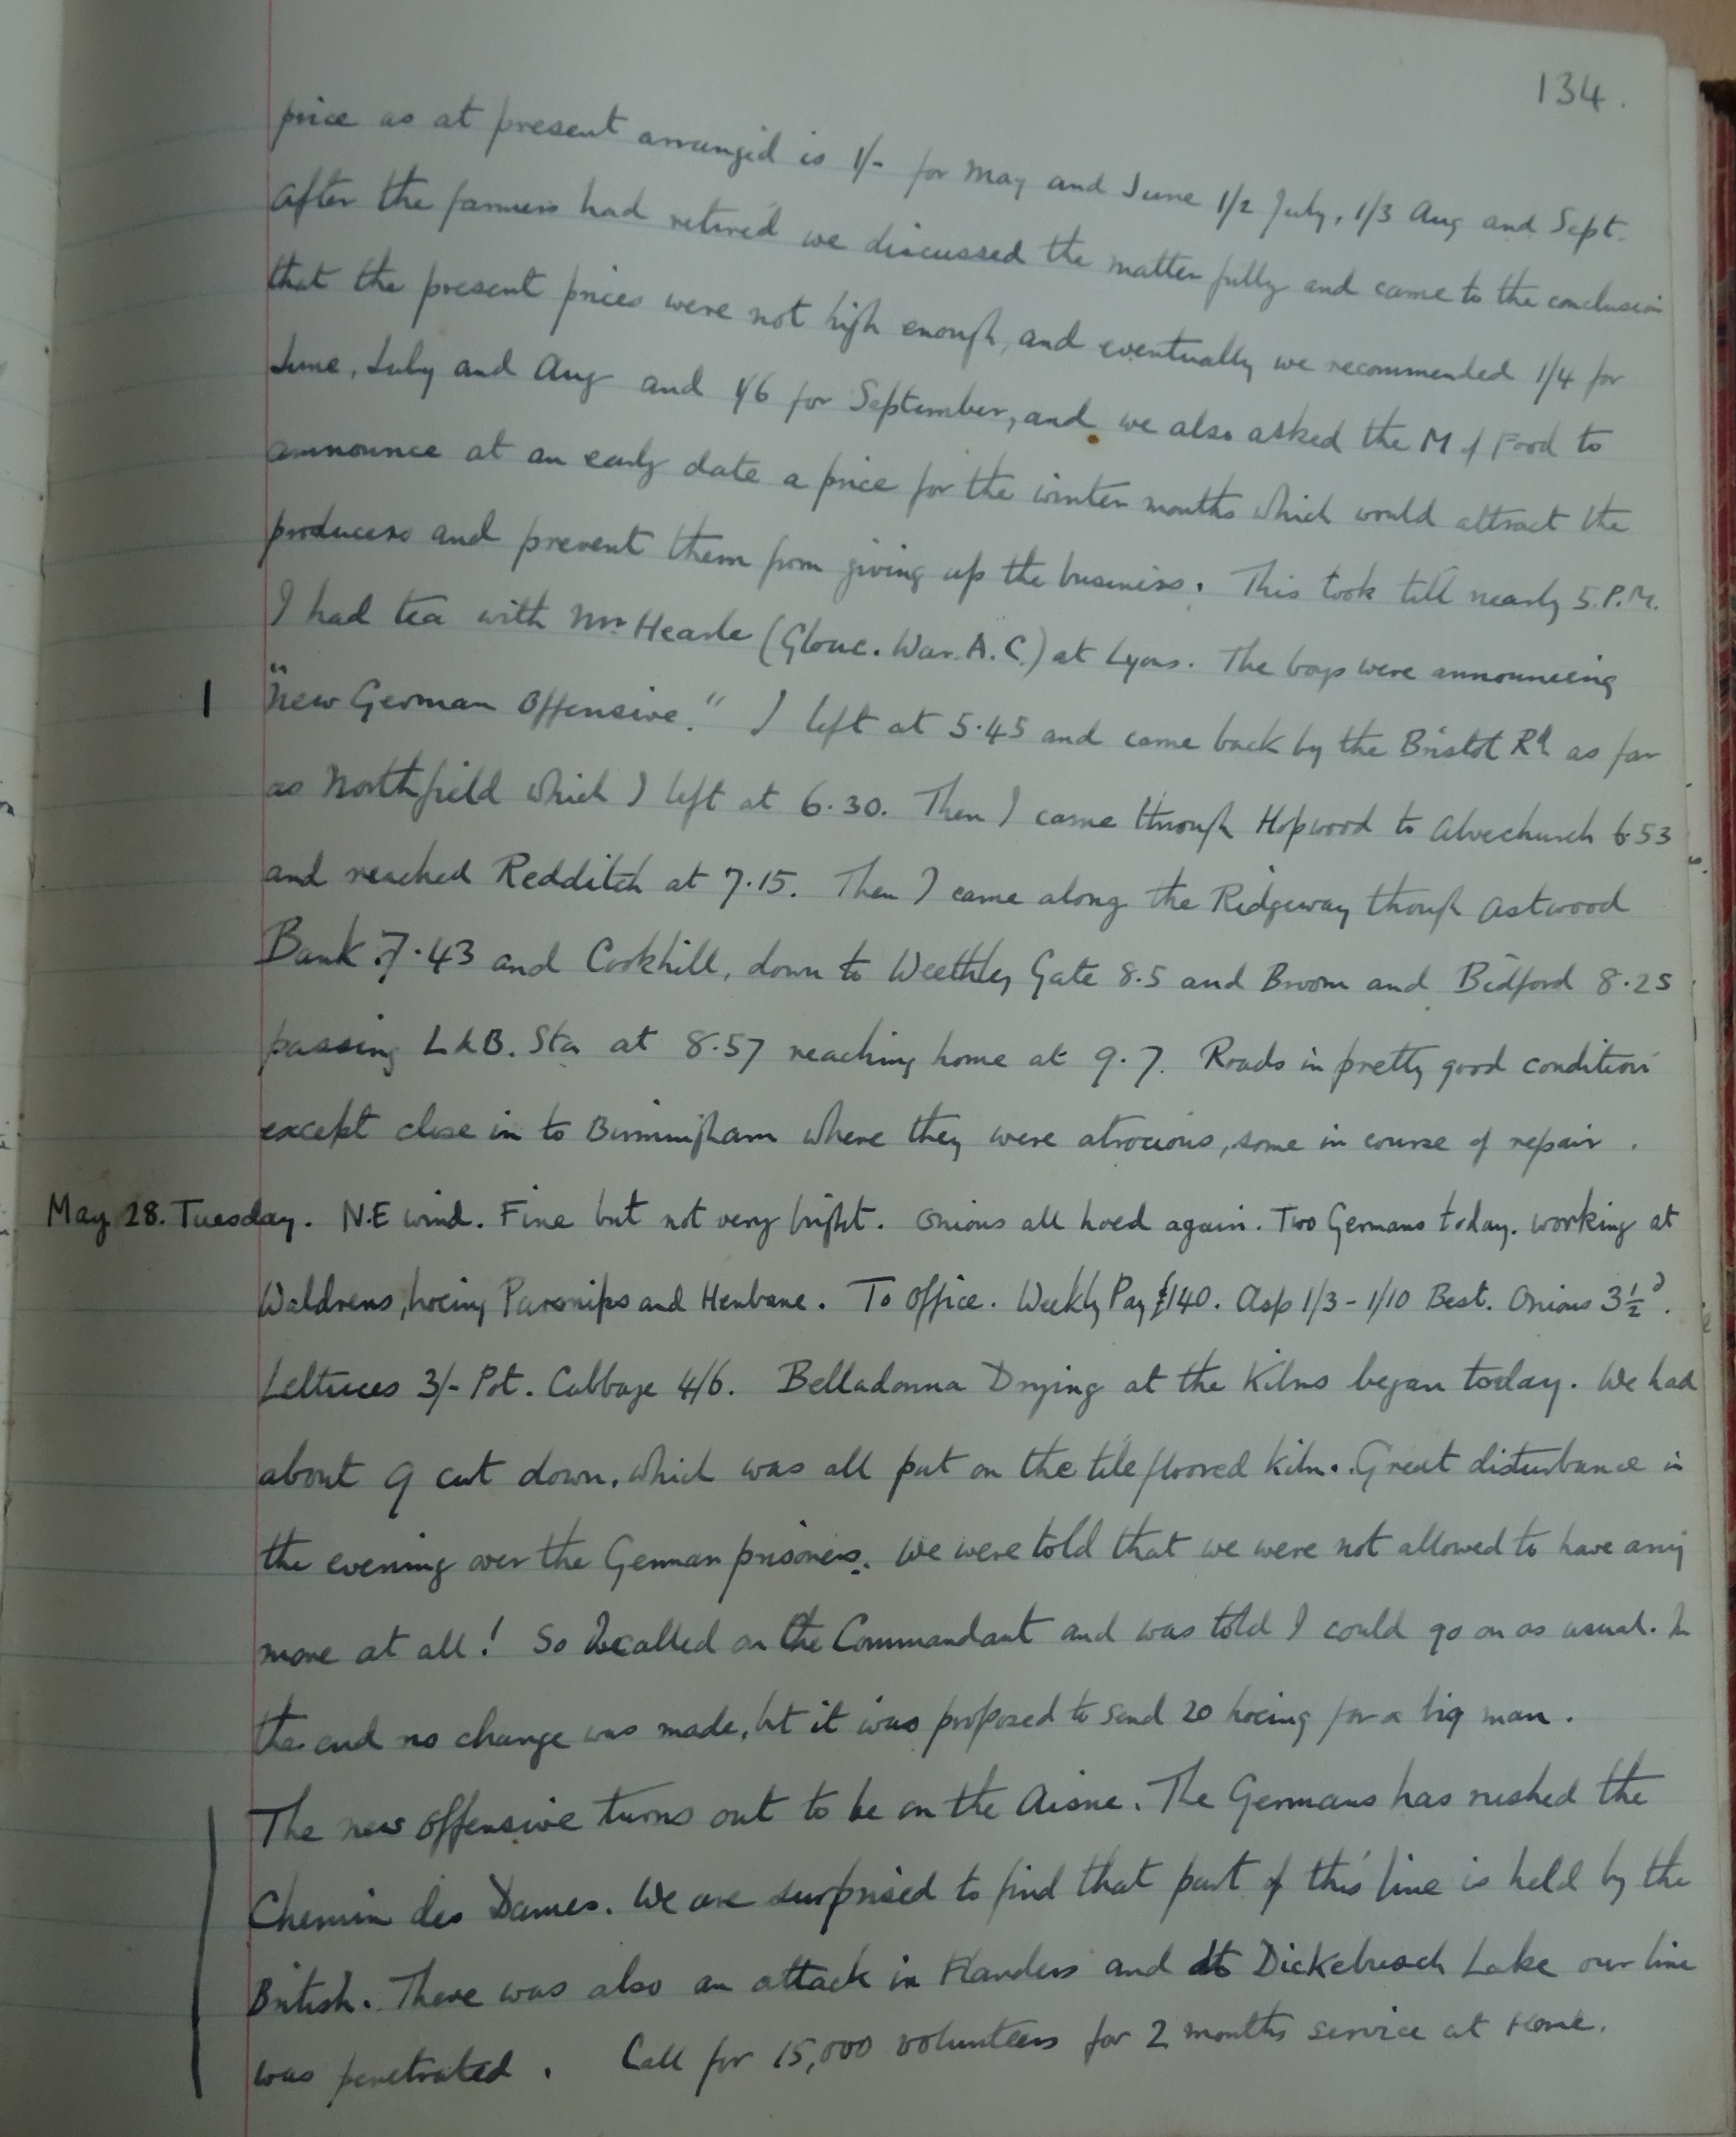 134.
price as at present arranged is 1/- for May and June 1/2 July, 1/3 Aug and Sept.
After the farmers had retired we discussed the matter fully and came to the conclusion
that the present prices were not high enough, and eventually we recommended 1/4 for
June, July and Aug and 1/6 for September, and we also asked the M of Food to
announce at an early date a price for the winter months which would attract the
producers and prevent them from giving up the business. This took till nearly 5.P.M.
I had tea with Mr Hearle (Glouc. War. A. C.) at Lyons. The boys were announcing
"New German Offensive." I left at 5.45 and came back by the Bristol Rd as far
as Northfield which I left at 6.30. Then I came through Hopwood to Alvechurch 6.53
and reached Redditch at 7.15. Then I came along the Ridgeway though Astwood
Bank 7.43 and Cookhill, down to Weethley Gate 8.5 and Broom and Bidford 8.25
passing L & B. Sta at 8.57 reaching home at 9.7. Roads in pretty good condition
except close in to Birmingham where they were atrocious, some in course of repair.
May 28. Tuesday. N.E wind. Fine but not very bright. Onions all hoed again. Two Germans today. working at
Waldrens, hoeing Parsnips and Henbane. To Office. Weekly Pay £140. Asp 1/3 - 1/10 Best. Onions 3½d.
Lettuces 3/- Pot. Cabbage 4/6. Belladonna Drying at the Kilns began today. We had
about 9 cwt down, which was all put on the tile floored kiln. Great disturbance in
the evening over the German prisoners. We were told that we were not allowed to have any
more at all! So I called on the Commandant and was told I could go on as usual. In
the end no change was made, but it was proposed to send 20 hoeing for a big man.
The new offensive turns out to be on the Aisne. The Germans has rushed the
Chemin des Dames. We are surprised to find that part of this line is held by the
British. There was also an attack in Flanders and at Dickebusch Lake our line
was penetrated. Call for 15,000 volunteers for 2 months service at Home.